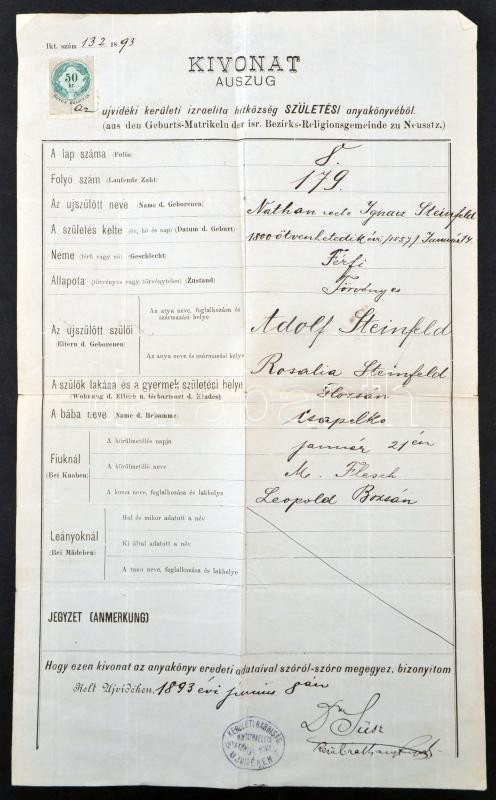 Ikt. szám 132 1893
KIVONAT
AUSZUG
50
kr
Az ujvidéki kerületi izraelita hitközség SZÜLETÉSI anyakönyvéből.
(aus den Geburts-Matrikeln der isr. Bezirks-Religionsgemeinde zu Neusatz.)
A lap száma (Folio) 8.
Folyó szám (Laufende Zahl) 179.
Az ujszülött neve (Name d. Geborenen) Nathan recte Ignacz Steinfeld
A születés kelte (év, hó és nap) (Datum d. Geburt) 1800 ötvenhetedik évi /1857/ Január 14
Neme (férfi vagy nő) (Geschlecht) Férfi
Állapota (törvényes vagy törvénytelen) (Zustand) Törvényes
Az ujszülött szülői
(Eltern d. Geborenen)
Az atya neve, foglalkozása és
származási helye
Adolf Steinfeld
Az anya neve és származási helye Rosalia Steinfeld
A szülők lakása és a gyermek születési helye
(Wohnung d. Eltern u. Geburtsort d. Kindes)
A bába neve (Name d. Hebamme)
Fiuknál
(Bei Knaben)
A körülmetélés napja január 21 én
A körülmetélő neve M. Flesch
A koma neve, foglalkozása és lakhelye Leopold
Leányoknál
(Bei Mädchen)
Hol és mikor adatott a név
Ki által adatott a név
A tanu neve, foglalkozása és lakhelye
JEGYZET (ANMERKUNG)
Hogy ezen kivonat az anyakönyv eredeti adataival szóról-szóra megegyez, bizonyitom
Kelt Ujvidéken, 1893 évi junius 8 án
KERÜLETI RABBISÁG
UJVIDÉKEN
Dr